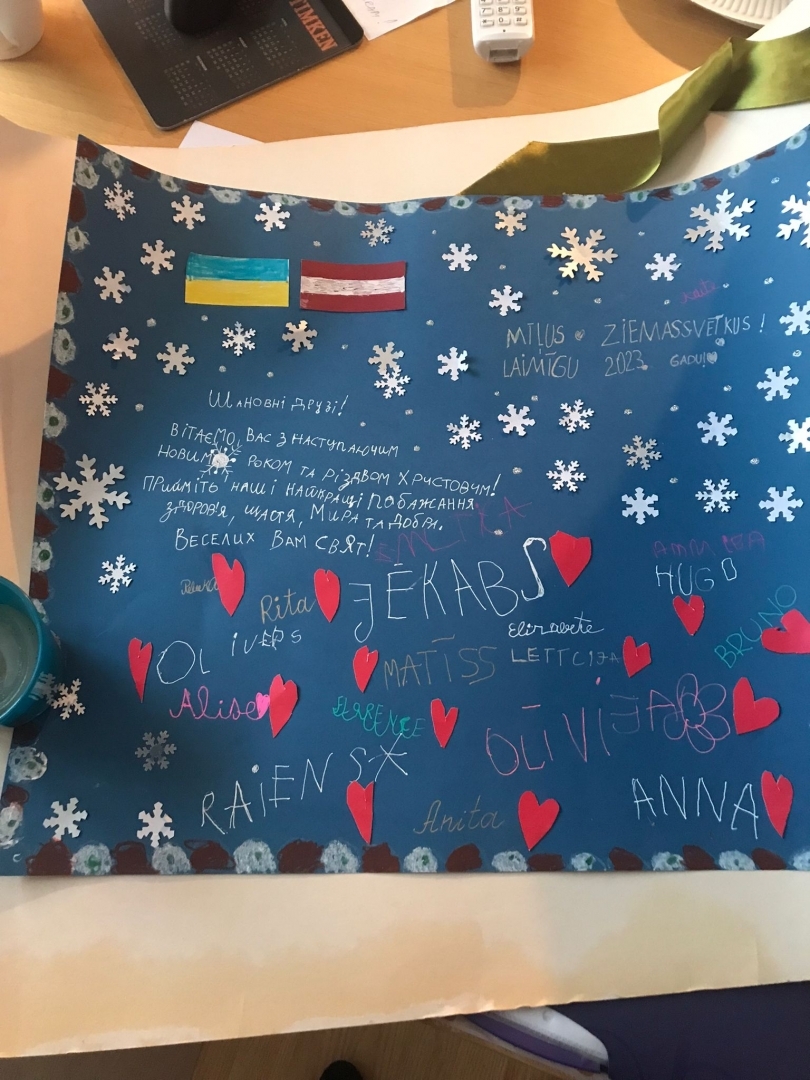 TIMKEN
Katte
MĪĻUS ZIEMASSVĒTKUS!
LAIMĪGU 2023. GADU!
Шановні друзі!
ВІТАЄМО ВАС З НАСТУПАЮЧИМ
НОВИМ РОКОМ ТА РІЗДВОМ ХРИСТОВИМ!
ПРИЙМІТЬ НАШІ НАЙКРАЩІ ПОБАЖАННЯ
ЗДОРОВ'Я, ЩАСТЯ, МИРА ТА ДОБРА.
ВЕСЕЛИХ ВАМ СВЯТ!
HUGO
JĒKABS
Rita
BRUNO
OLIVERS
Elizabete
MATĪSS
LETĪCIJA
Alise
OLĪVIJA
RAIENS
Anita
ANNA